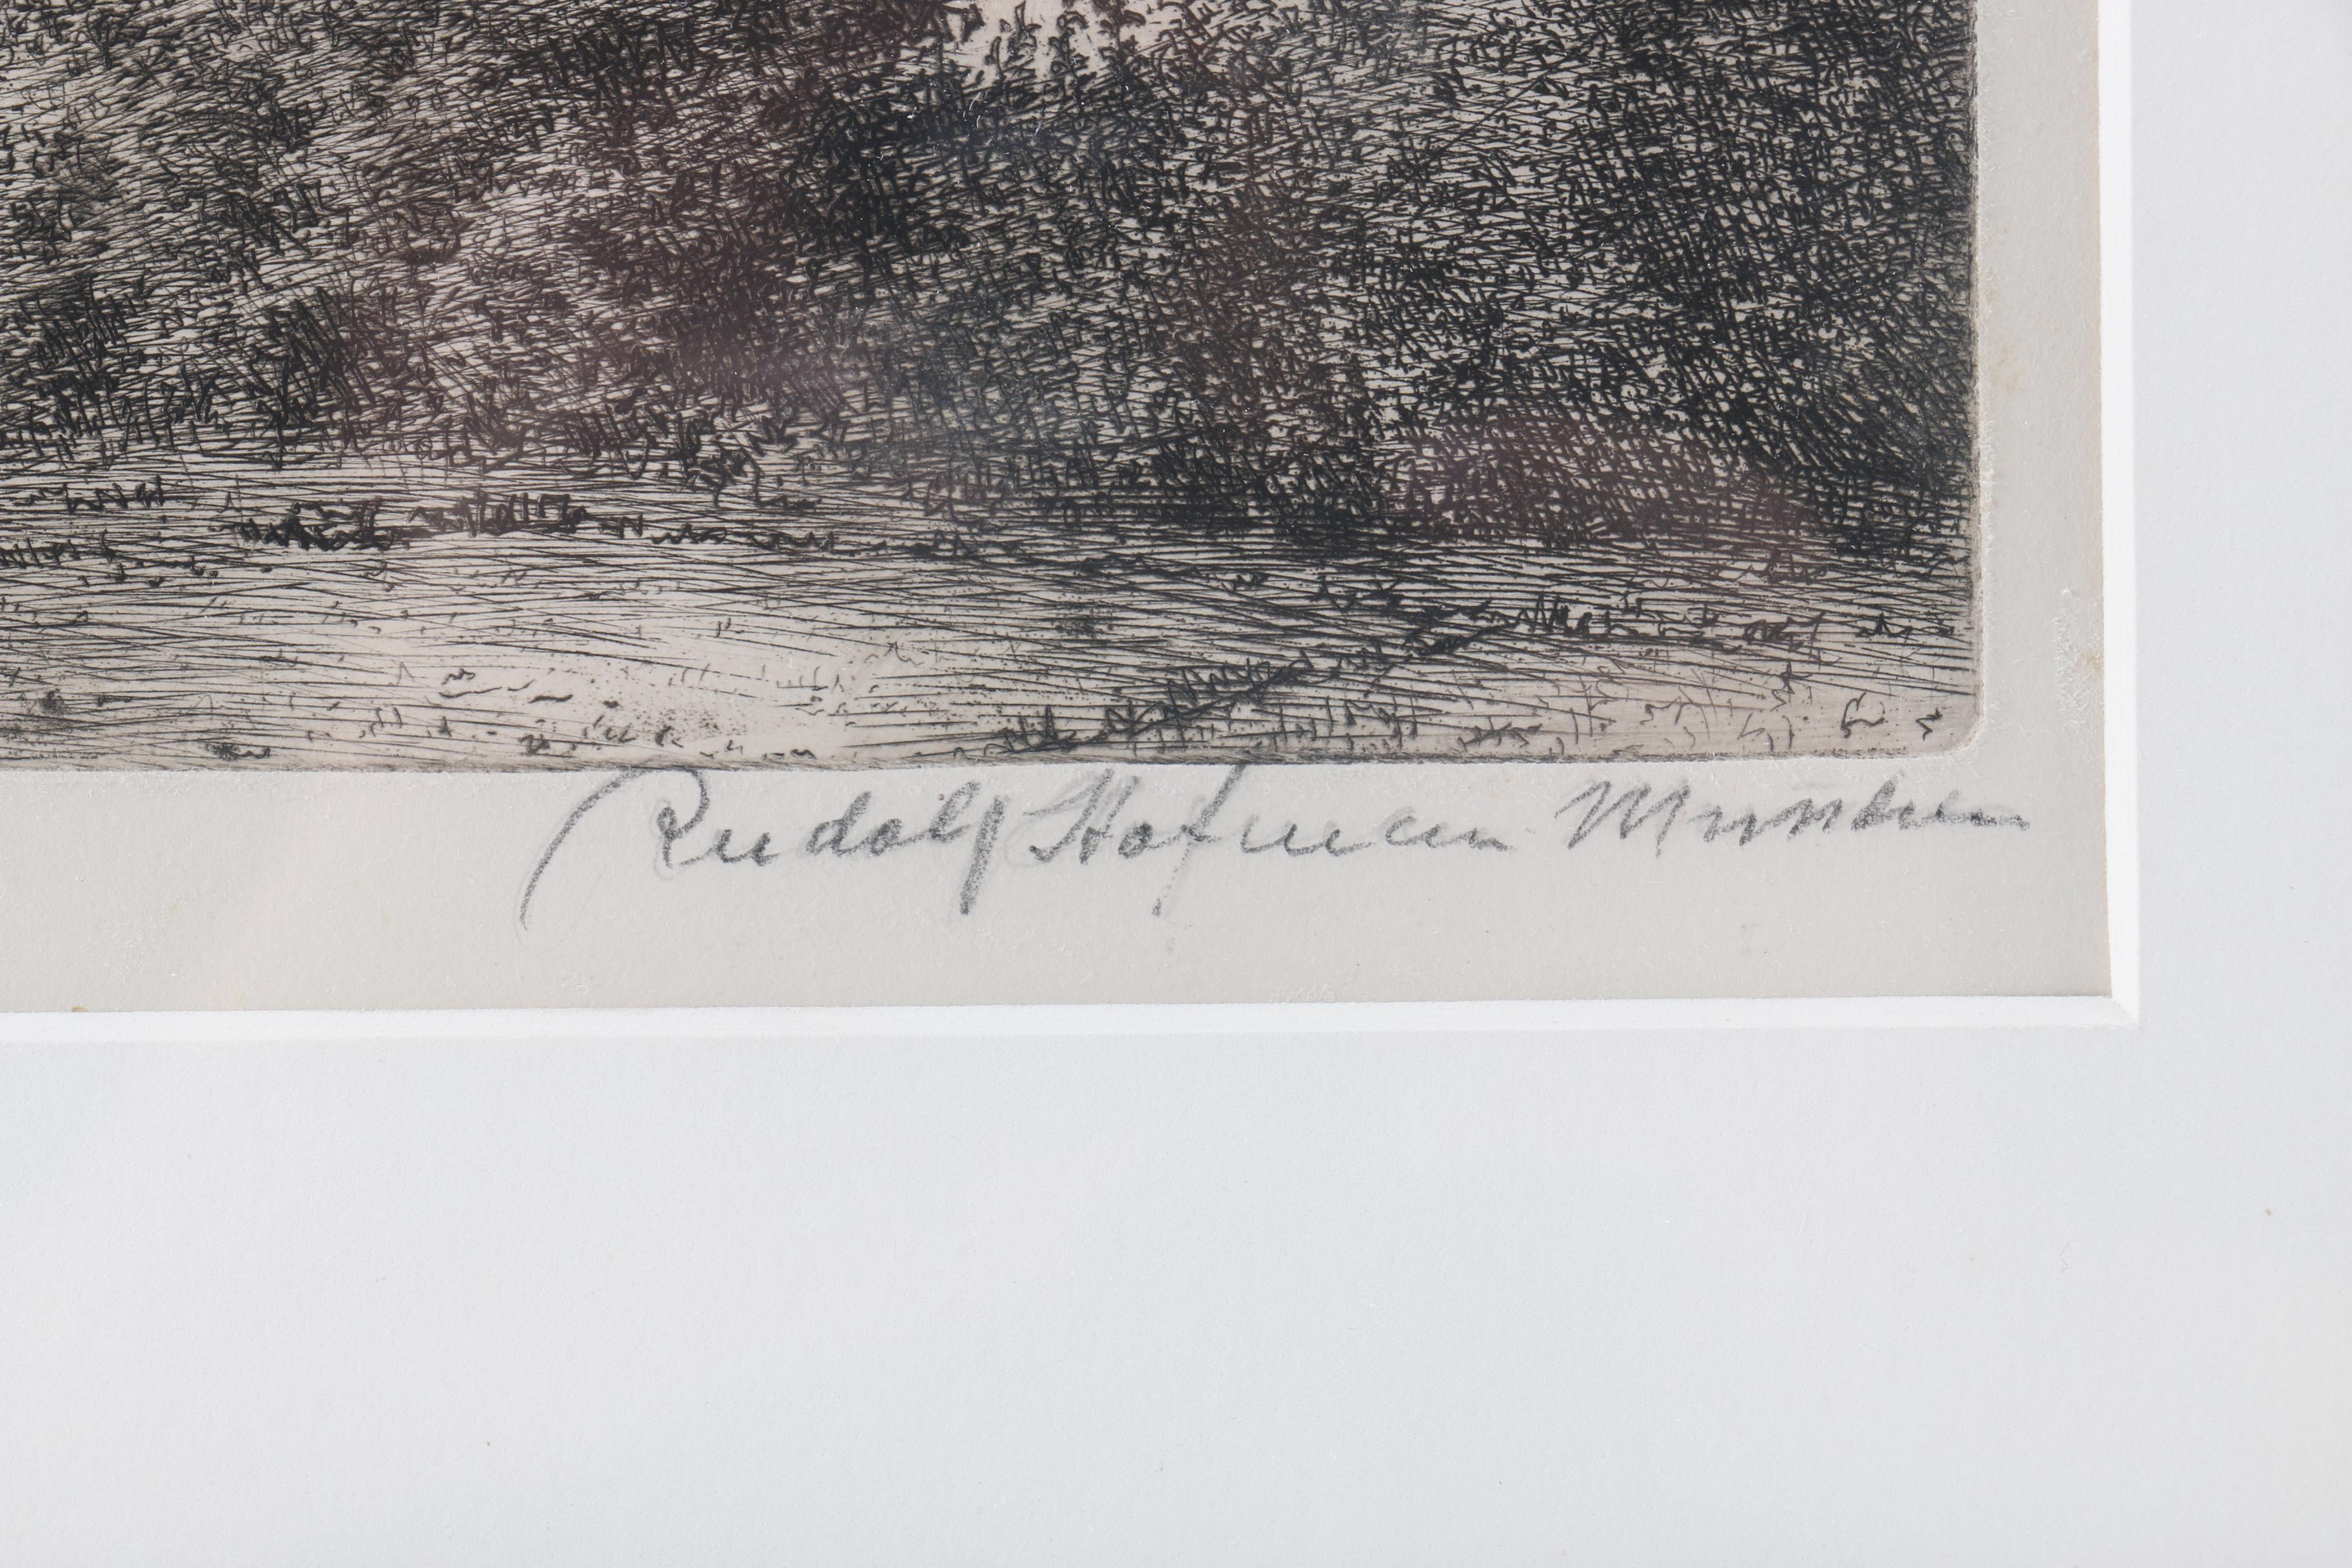 Rudolf Hofmann München